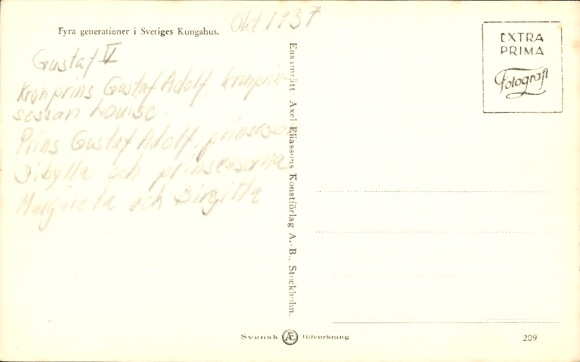 Okt 1937
Fyra generationer i Sveriges Kungahus.
Gustaf V
Kronprins Gustaf Adolf, kronprin
sessan Louise.
Prins Gustaf Adolf, prinsessan
Sibylla och prinsessorna
Margareta och Birgitta
Ensamrätt Axel Eliassons Konstförlag A.-B., Stockholm.
EXTRA
PRIMA
Fotografi
Svensk Æ tillverkning
209